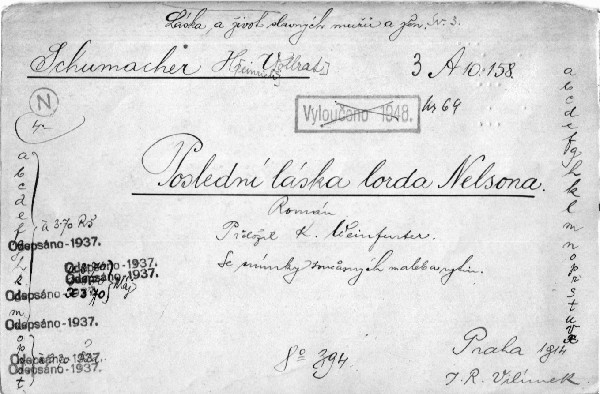 Láska a život slavných mužů a žen. Sv. 3.
Schumacher H[einrich] Vollrat
3 A 10.158
N
Vyloučeno 1948.
Poslední láska lorda Nelsona.
Román
Přeložil K. Weinfurter.
Se snímky současných maleb
à 3·70
Odepsáno-1937.
Odepsáno-1937.
Odepsáno-1937.
Odepsáno-1937.
Odepsáno-1937.
Odepsáno-1937.
Odepsáno-1937.
8° 394.
Praha 1914
J. R. Vilímek
a b c d e f g h k l m n o p r s t u v z
a b c d e f g h k m o p s t